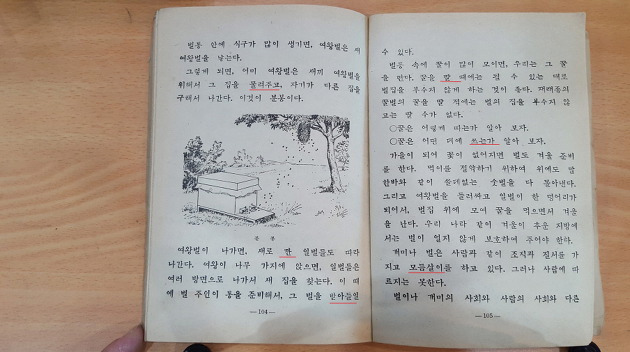 벌통 안에 식구가 많이 생기면, 여왕벌은 새
여왕벌을 낳는다.
그렇게 되면, 어미 여왕벌은 새끼 여왕벌을
위해서 그 집을 물려주고, 자기가 다른 집을
구해서 나간다. 이것이 분봉이다.
분 봉
여왕벌이 나가면, 새로 깐 일벌들도 따라
나간다. 여왕이 나무 가지에 앉으면, 일벌들은
여러 방면으로 나가서 새 집을 찾는다. 이 때
에 벌 주인이 통을 준비해서, 그 벌을 받아들일
—104—
수 있다.
벌통 속에 꿀이 많이 모이면, 우리는 그 꿀
을 떤다. 꿀을 딸 때에는 될 수 있는 대로
벌집을 부수지 않게 하는 것이 좋다. 재래종의
꿀벌의 꿀을 딸 적에는 벌의 집을 부수지 않
고는 딸 수가 없다.
○꿀은 어떻게 떠는가 알아 보자.
○꿀은 어떤 데에 쓰는가 알아 보자.
가을이 되어 꽃이 없어지면 벌도 겨울 준비
를 한다. 먹이를 절약하기 위하여 위에도 말
한바와 같이 쓸데없는 숫벌을 다 몰아낸다.
그리고 여왕벌을 둘러싸고 일벌이 한 덩어리가
되어서, 벌집 위에 모여 꿀을 먹으면서 겨울
을 난다. 우리 나라 같이 겨울이 추운 지방에
서는 벌이 얼지 않게 보호하여 주어야 한다.
개미나 벌은 사람과 같이 조직과 질서를 가
지고 모듬살이를 하고 있다. 그러나 사람에 따
르지는 못한다.
벌이나 개미의 사회와 사람의 사회와 다른
—105—